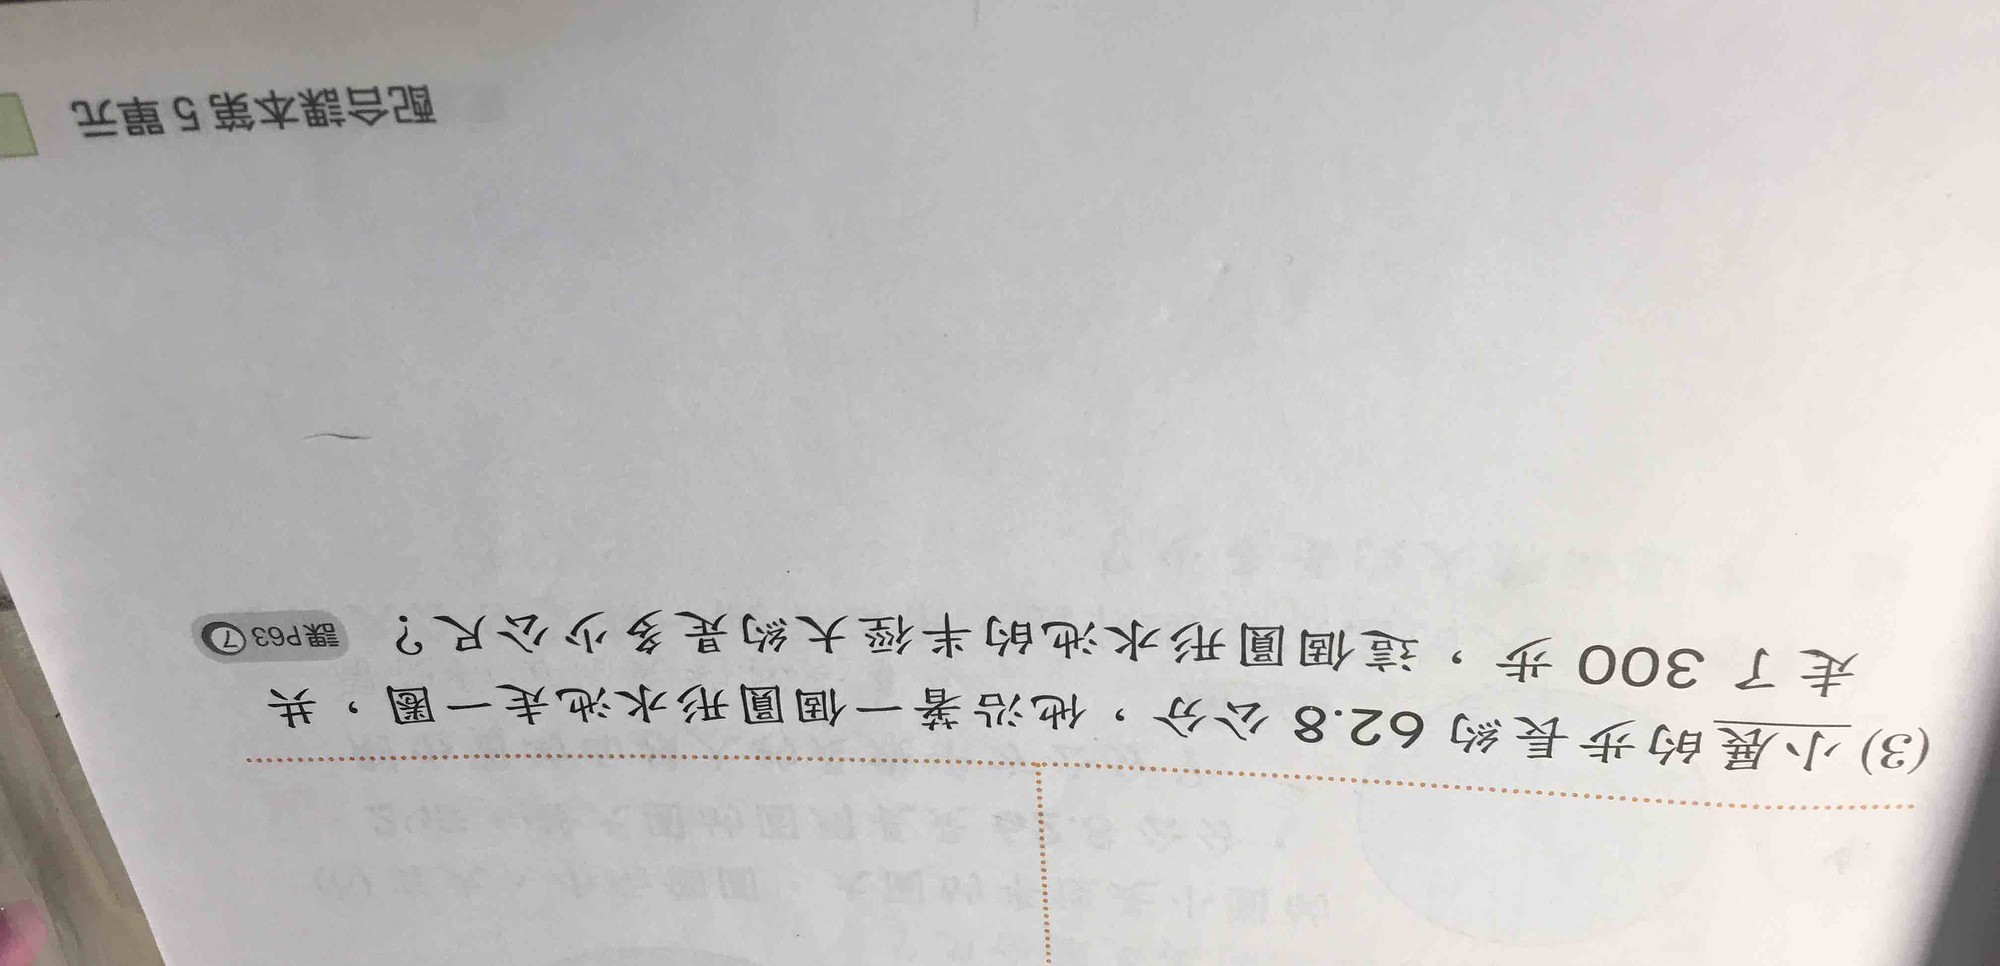 (3)小展的步長約 62.8 公分，他沿著一個圓形水池走一圈，共
走了 300 步，這個圓形水池的半徑大約是多少公尺？ 課P63⑦
配合課本第 5 單元